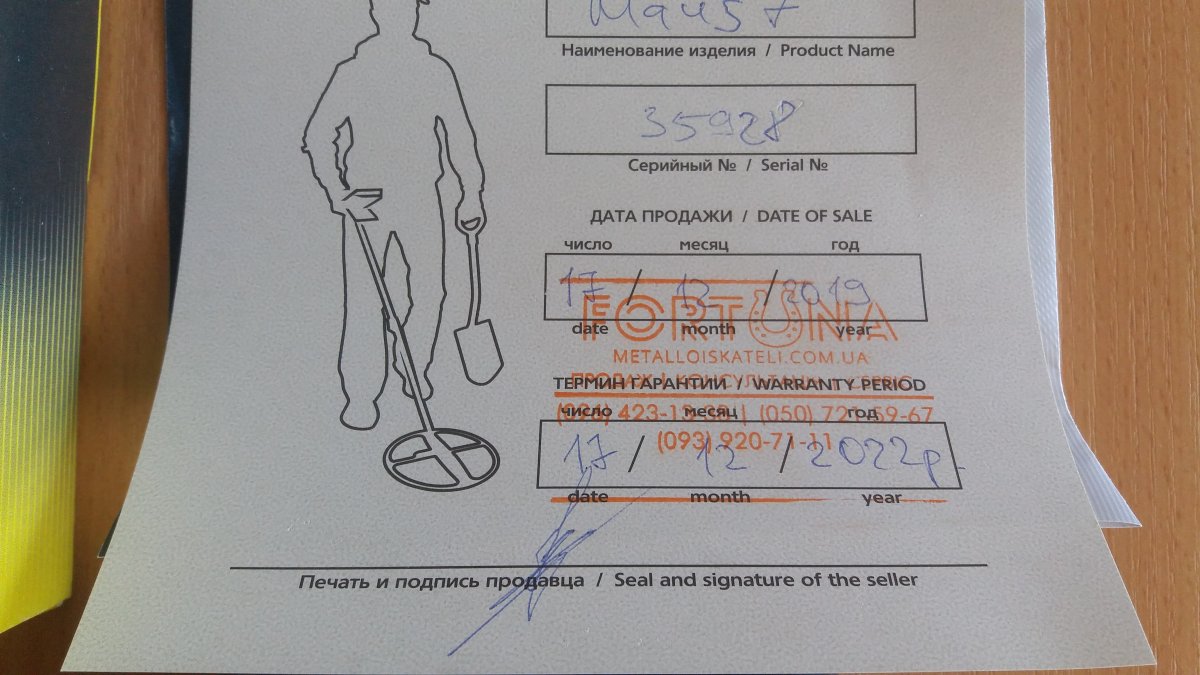 Наименование изделия / Product Name
35928
Серийный № / Serial №
ДАТА ПРОДАЖИ / DATE OF SALE
число месяц год
17 / 12 / 2019
date month year
FORTUNA
METALLOISKATELI.COM.UA
ТЕРМИН ГАРАНТИИ / WARRANTY PERIOD
число месяц год
423- | (050) 59-67
(093) 920-71-11
17 / 12 / 2022р.
date month year
Печать и подпись продавца / Seal and signature of the seller